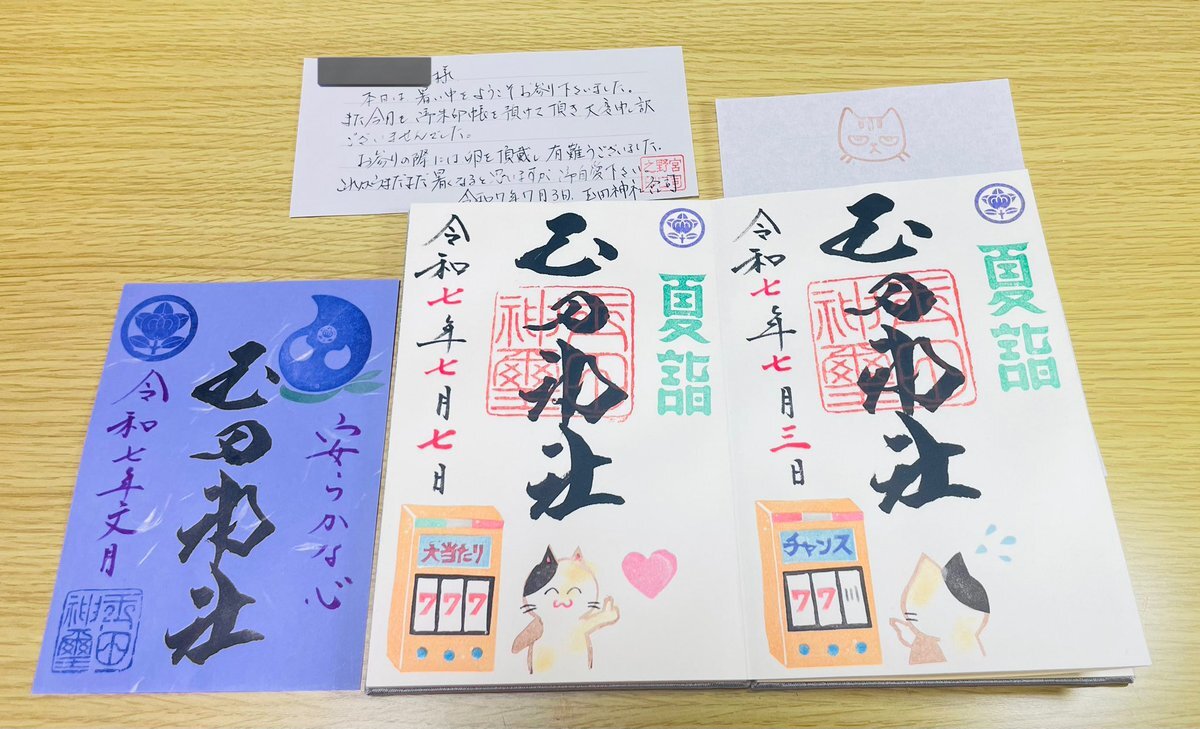 様
本日は暑い中をようこそお参り下さいました。
また今月も御朱印帳を預けて頂き大変申し訳
ございませんでした。
お参りの際には卵を頂戴し有難うございました。
これからまだまだ暑くなると思いますが御自愛下さい
令和7年7月3日 玉田神社宮司
夏詣
玉田神社
玉田神璽
令和七年七月三日
チャンス
77
夏詣
玉田神社
玉田神璽
令和七年七月七日
大当たり
777
安らかな心
玉田神社
令和七年文月
玉田神璽